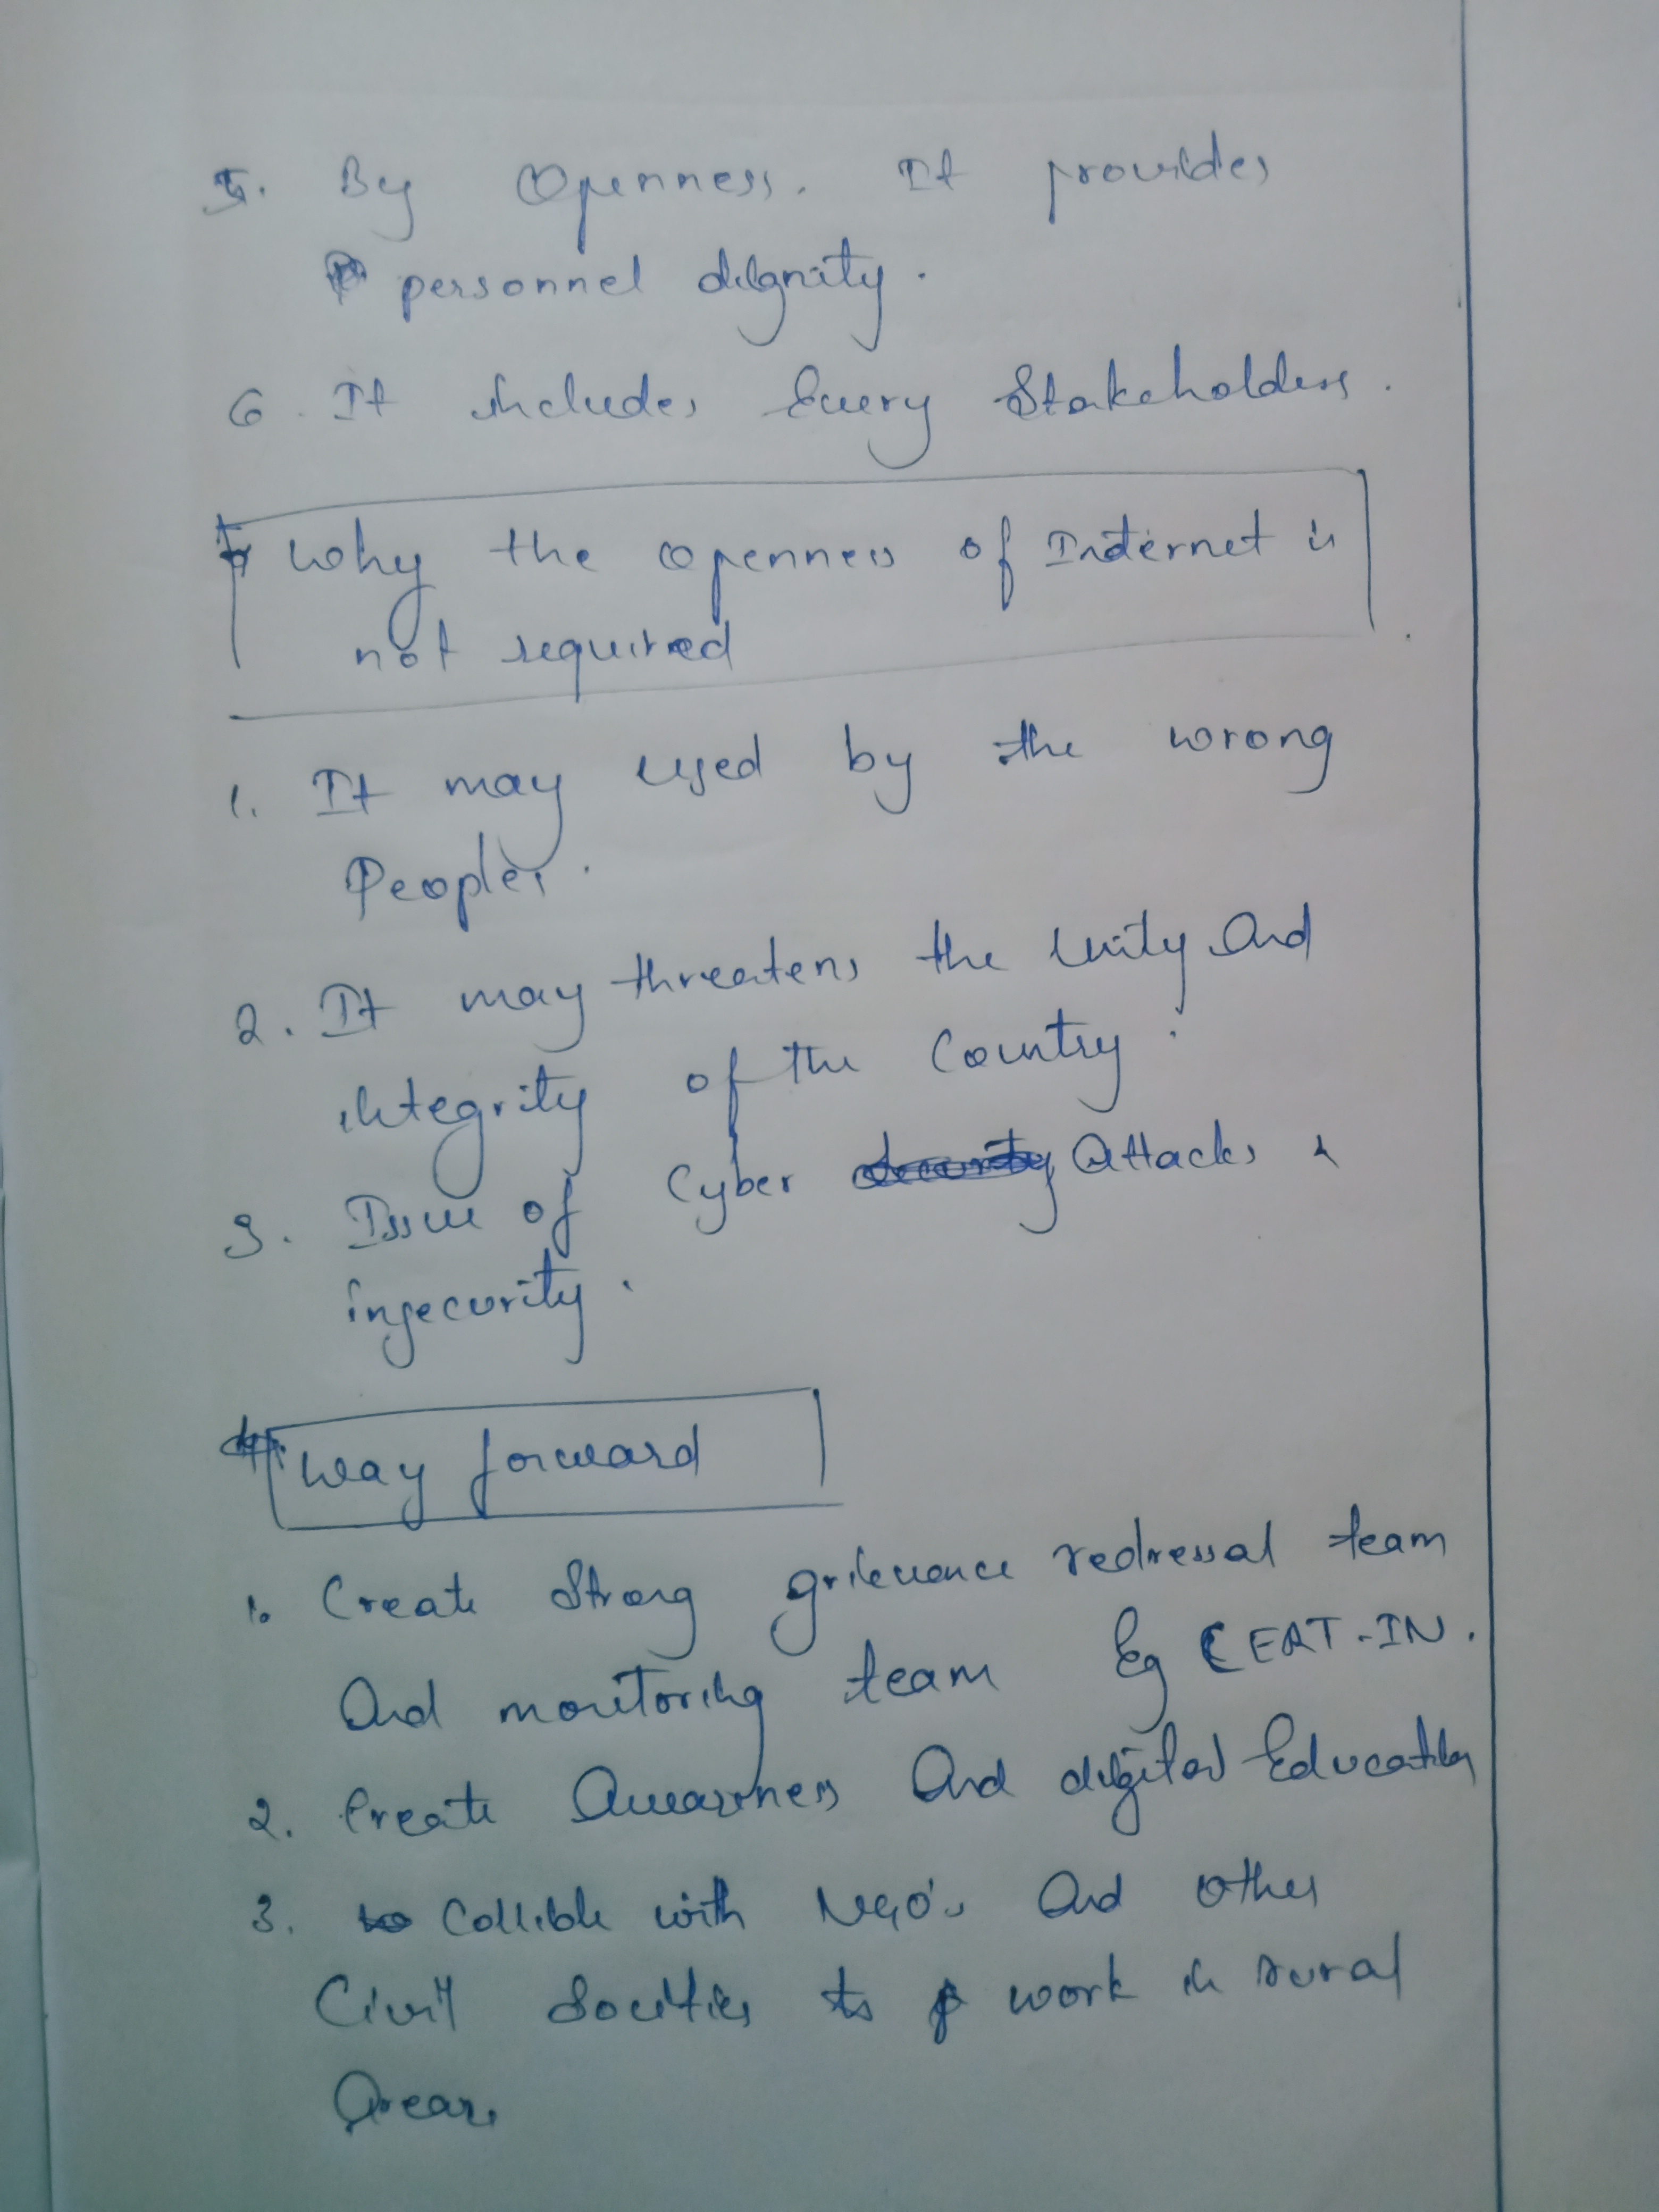 5. By Openness. It provides
personnel dignity.
6. It includes Every Stakeholders.
Why the openness of Internet is
not required
1. It may used by the wrong
Peoples.
2. It may threatens the Unity And
integrity of the Country.
3. Issue of Cyber Attacks &
insecurity.
Way forward
1. Create Strong grievance redressal team
And monitoring team Eg CERT-IN.
2. Create Awareness And digital Education
3. Collible with NGO's And other
Civil Socities to work in rural
Areas